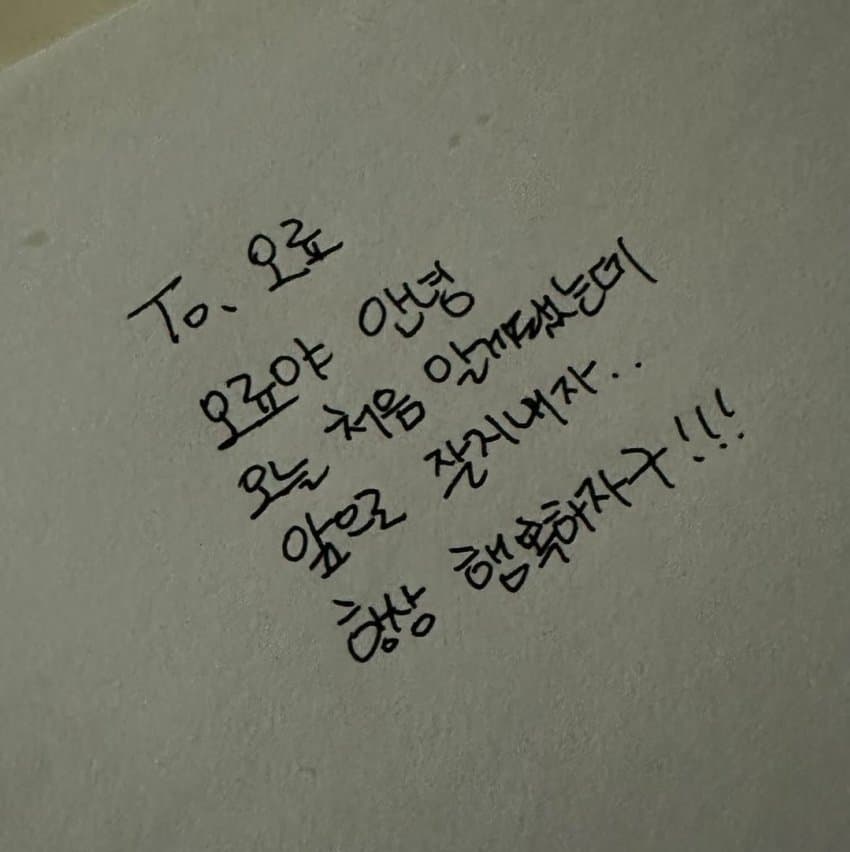 To. 오료
오료야 안녕
오늘 처음 알게되었는데
앞으로 잘지내자..
항상 행복하자구!!!